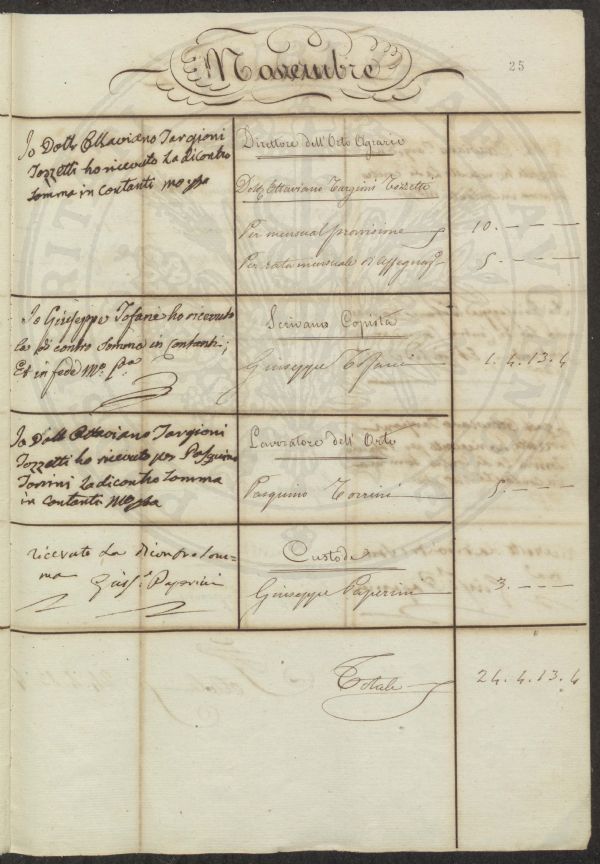 Novembre
25
Io Dottr Ottaviano Targioni
Tozzetti ho ricevuto la dicontro
somma in contanti mo ppa
Direttore dell'Orto Agrario
Dottr Ottaviano Targioni Tozzetti
Per mensual provvisione
10. - - -
Per rata mensuale d'Assegnaz
5. - - -
Io Giuseppe Tofani ho ricevuto
la di contro somma in contanti;
Et in fede Mo. pa
Scrivano Copista
Giuseppe Tofani
1. 4. 13. 4
Io Dott Ottaviano Targioni
Tozzetti ho ricevuto per Pasquino
Torrini la dicontro somma
in contanti mo ppa
Lavoratore dell'Orto
Pasquino Torrini
5. - - -
ricevuto la dicontro som=
ma
Giuse Paperini
Custode
Giuseppe Paperini
3. - - -
Totale
24. 4. 13. 4